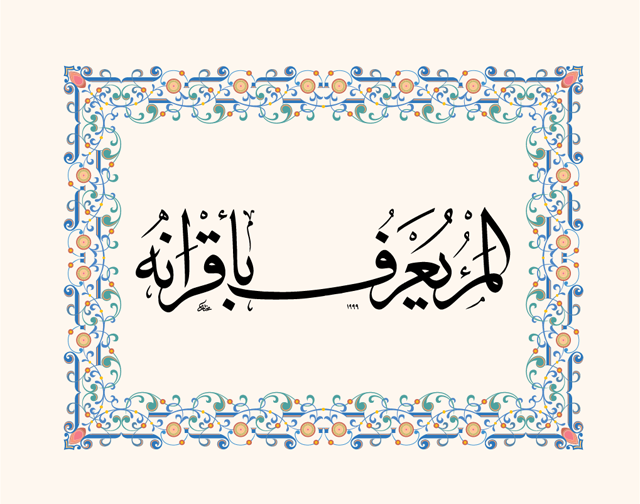 المرء يعرف بأقرانه
١٩٩٩